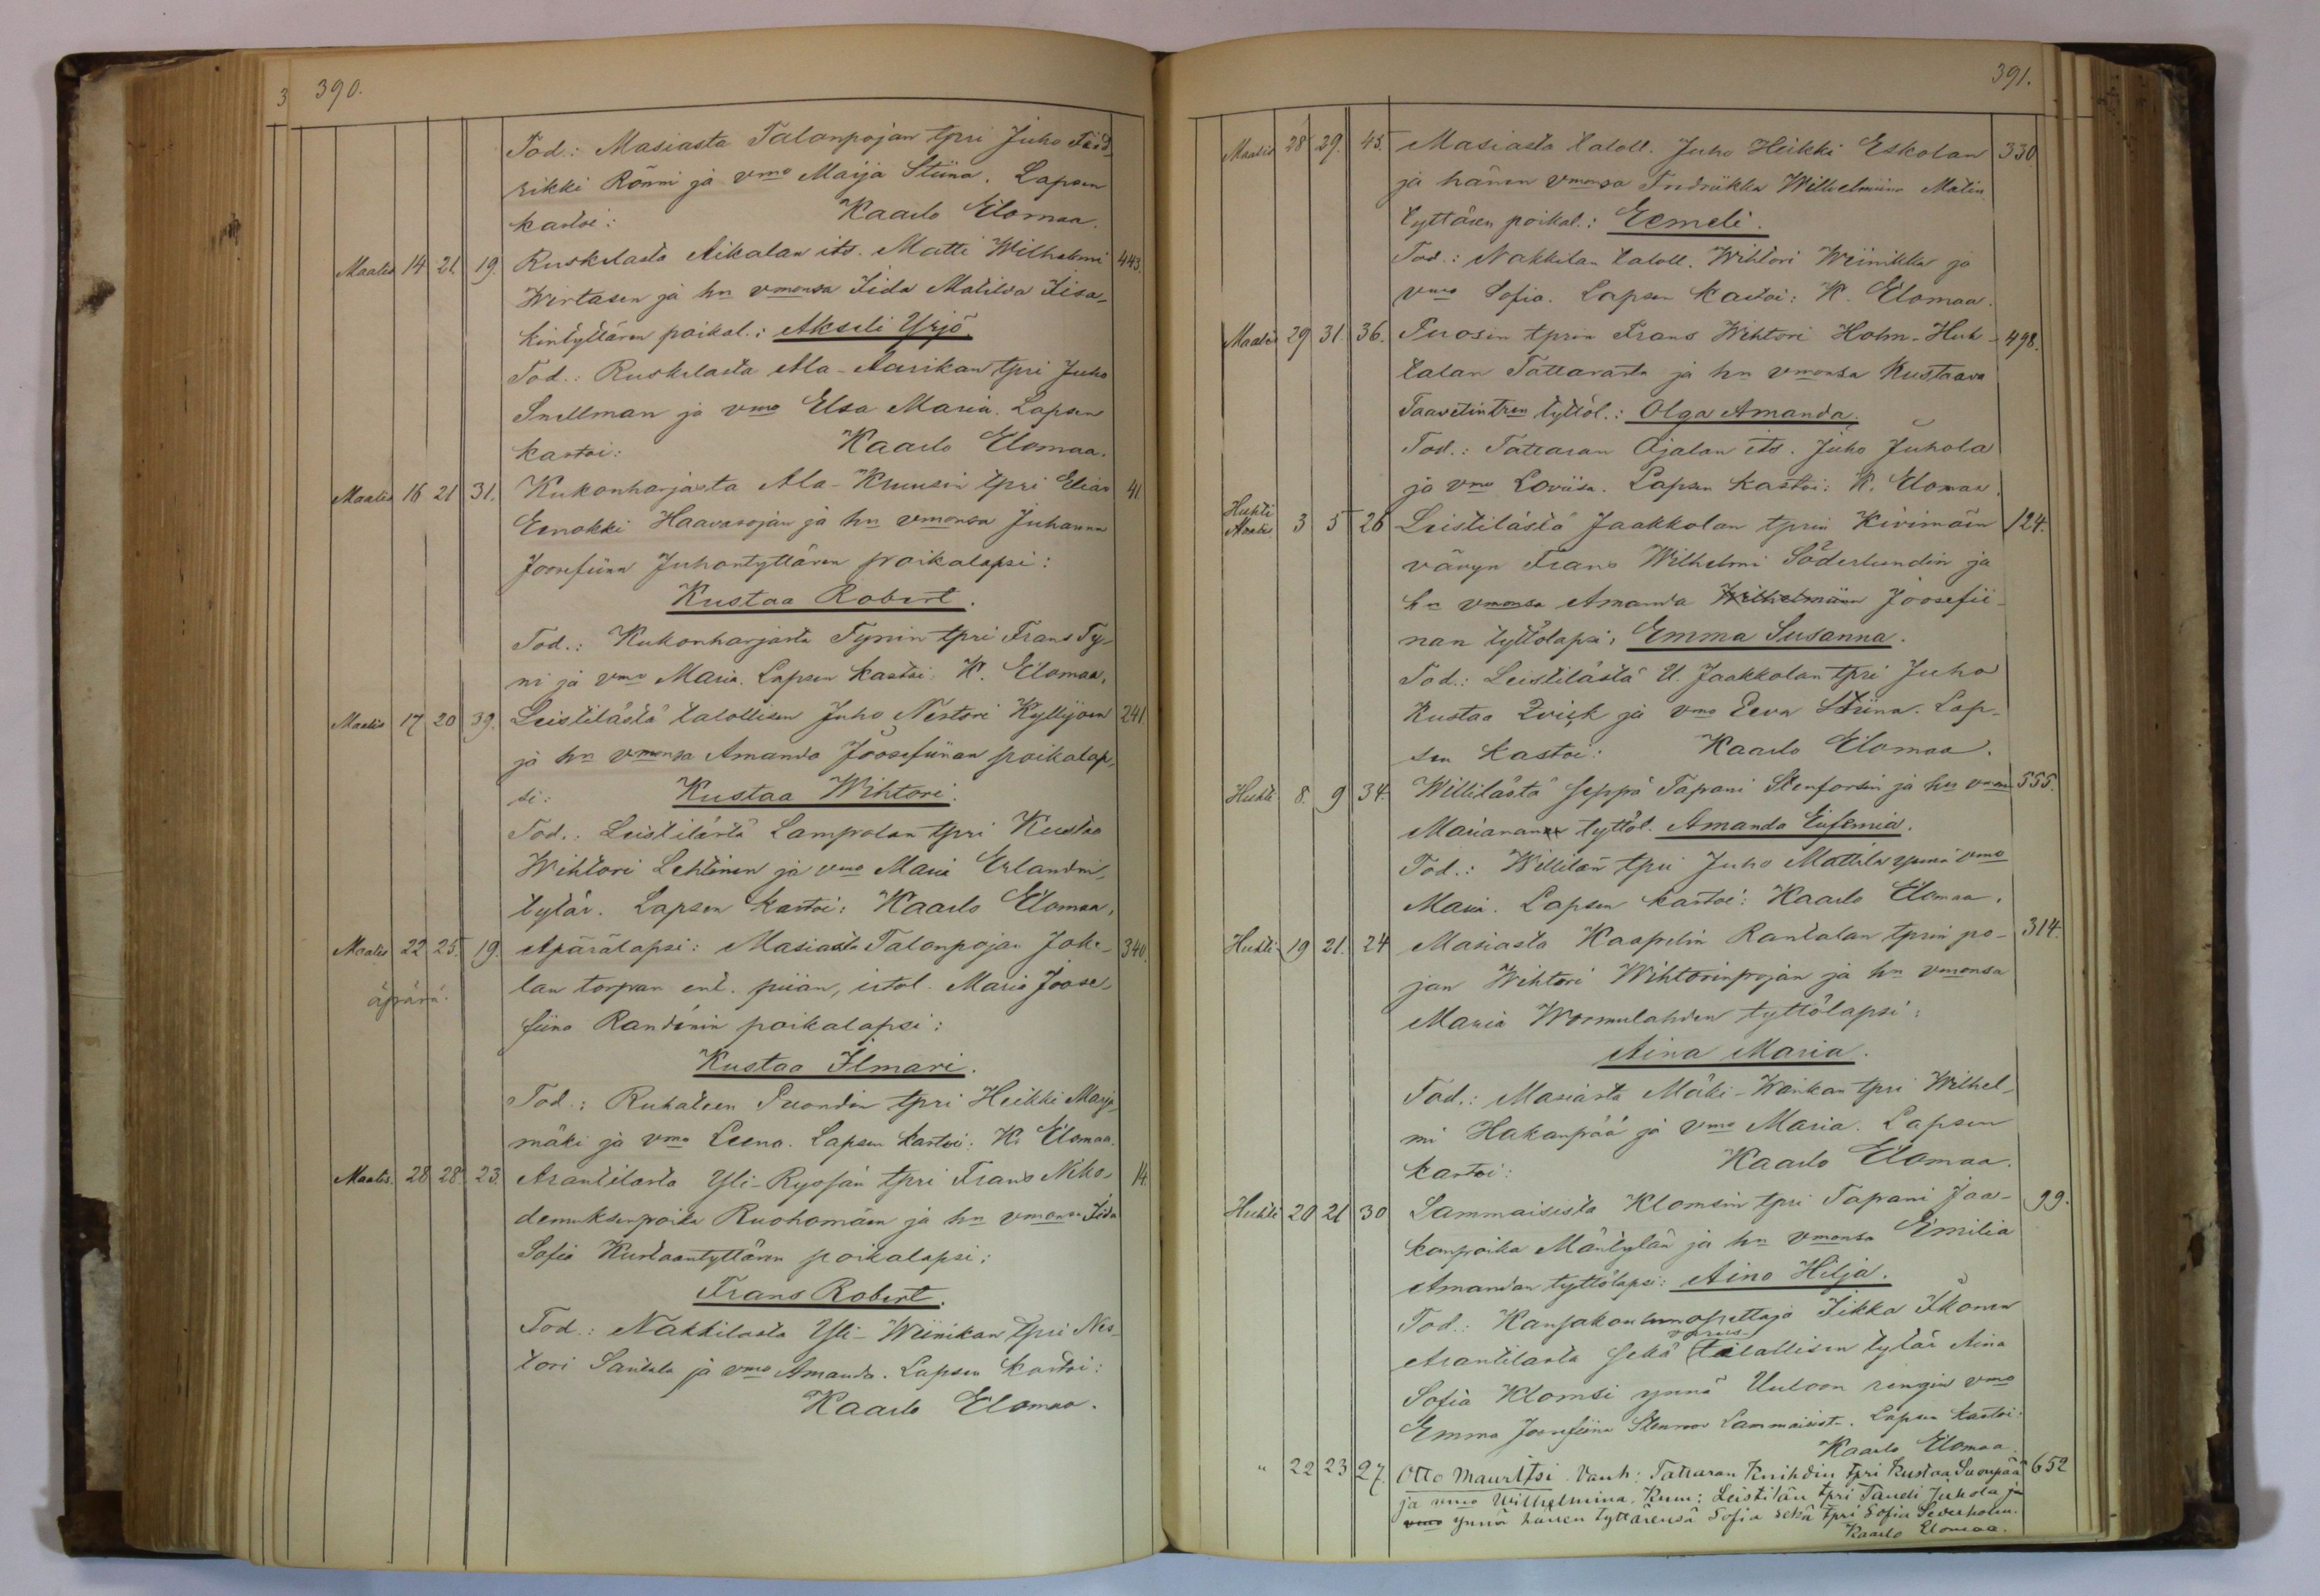 3 390.
Tod.: Masiasta Talonpojan tpri Juho Fred-
rikki Rönni ja vmo Maija Stiina. Lapsen
kastoi: Kaarlo Elomaa.
Maalis 14 21. 19. Ruskilasta Aikalan its. Matti Wilhelmi 443.
Wirtasen ja hn vmonsa Iida Matilda Iisa-
kintyttären poikal.: Akseli Yrjö.
Tod.: Ruskilasta Ala-Aarikan tpri Juho
Snellman ja vmo Elsa Maria. Lapsen
kastoi: Kaarlo Elomaa.
Maalis 16 21 31. Kukonharjasta Ala-Kruusin tpri Elias 41
Eenokki Haavasojan ja hn vmonsa Juhanna
Joosefiina Juhontyttären poikalapsi:
Kustaa Robert.
Tod.: Kukonharjasta Tynin tpri Frans Ty-
ni ja vmo Maria. Lapsen kastoi: K. Elomaa.
Maalis 17 20 39. Leistilästä talollisen Juho Nestori Kyllijoen 241
ja hn vmonsa Amanda Joosefiinan poikalap-
si: Kustaa Wihtori.
Tod.: Leistilästä Lampolan tpri Kustaa
Wihtori Lehtinen ja vmo Maria Erlandin-
tytär. Lapsen kastoi: Kaarlo Elomaa.
Maalis 22 25. 19. Äpärälapsi: Masiasta Talonpojan Joke- 340.
äpärä. lan torpan ent. piian, istol. Maria Joose-
fiina Randénin poikalapsi:
Kustaa Ilmari.
Tod.: Ruhateen Suondin tpri Heikki Marja-
mäki ja vmo Leena. Lapsen kastoi: K. Elomaa.
Maalis. 28 28 23. Arantilasta Yli-Ryssän tpri Frans Niko- 14.
demuksenpoika Ruohomäen ja hn vmonsa Iida
Sofia Kustaantyttären poikalapsi:
Frans Robert.
Tod.: Nakkilasta Yli-Wiinikan tpri Nes-
tori Santala ja vmo Amanda. Lapsen kastoi:
Kaarlo Elomaa.
391.
Maalis 28 29. 45. Masiasta taloll. Juho Heikki Eskolan 330
ja hänen vmonsa Fredriikka Wilhelmiina Matin
tyttären poikal.: Eemeli.
Tod.: Nakkilan taloll. Wihtori Wiinikka ja
vmo Sofia. Lapsen kastoi: K. Elomaa.
Maalis 29 31 36. Puosin tprin Frans Wihtori Holm-Huh- 498.
talan Tattarasta ja hn vmonsa Kustaava
Taavetintren tyttöl.: Olga Amanda.
Tod.: Tattaran Ojalan its. Juho Juhola
ja vmo Loviisa. Lapsen kastoi: K. Elomaa.
Huhti
Maalis 3 5 26 Leistilästä Jaakkolan tprin Kivimäen 124.
vävyn Frans Wilhelmi Söderlundin ja
hn vmonsa Amanda Wilhelmiina Joosefii-
nan tyttölapsi: Emma Susanna.
Tod.: Leistilästä U. Jaakkolan tpri Juho
Kustaa Qvick ja vmo Eeva Stiina. Lap-
sen kastoi: Kaarlo Elomaa.
Huhti 8. 9 34. Willilästä seppä Tapani Stenforsin ja hn vmon 555.
Marianan tyttöl. Amanda Eufemia.
Tod.: Willilän tpri Juho Mattila ynnä vmo
Maria. Lapsen kastoi: Kaarlo Elomaa.
Huhti 19 21. 24 Masiasta Kaapelin Rantalan tprin po- 314.
jan Wihtori Wihtorinpojan ja hn vmonsa
Maria Wormulahden tyttölapsi:
Aina Maria.
Tod.: Masiasta Mäki-Kankan tpri Wilhel-
mi Hakanpää ja vmo Maria. Lapsen
kastoi: Kaarlo Elomaa.
Huhti 20 21 30 Lammaisista Klomsin tpri Tapani Jaa- 99.
konpoika Mäntylän ja hn vmonsa Emilia
Amandan tyttölapsi: Aino Hilja.
Tod.: Kansakoulunopettaja Iikka Ikonen
Arantilasta sekä talollisen tytär Aina
Sofia Klomsi ynnä Uuloon rengin vmo
Emma Joosefiina Stenroos Lammaisist. Lapsen kastoi:
Kaarlo Elomaa.
" 22 23 27. Otto Mauritsi Vanh: Tattaran Knihdin tpri Kustaa Suonpää 652
ja vmo Wilhelmina, Kum: Leistilän tpri Taneli Juhola ja
vmo ynnä hänen tyttärensä Sofia sekä tpri Sofia Sederholm.
Kaarlo Elomaa.